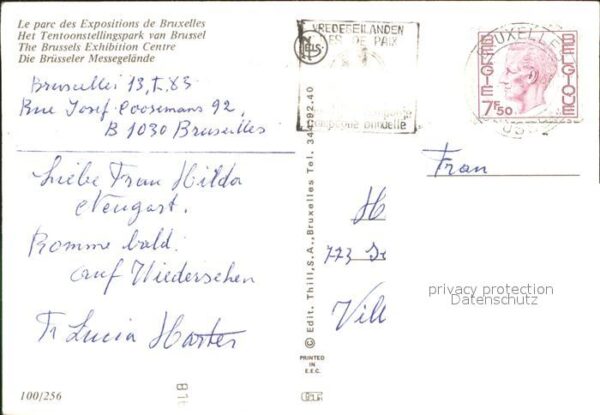 Le parc des Expositions de Bruxelles
Het Tentoonstellingspark van Brussel
The Brussels Exhibition Centre
Die Brüsseler Messegelände
Bruxelles 13.I.83
Rue Josef Coosemans 92,
B 1030 Bruxelles
Liebe Frau Hilda
Neugart.
Komme bald.
auf Wiedersehen
Fr Lucia Harter
100/256
VREDESEILANDEN
DE PAIX
BELGIE
BELGIQUE
7F50
© Edit. Thill, S.A., Bruxelles Tel. 344.92.40
PRINTED
IN
E.E.C.
Frau
H
773
Vill
privacy protection
Datenschutz